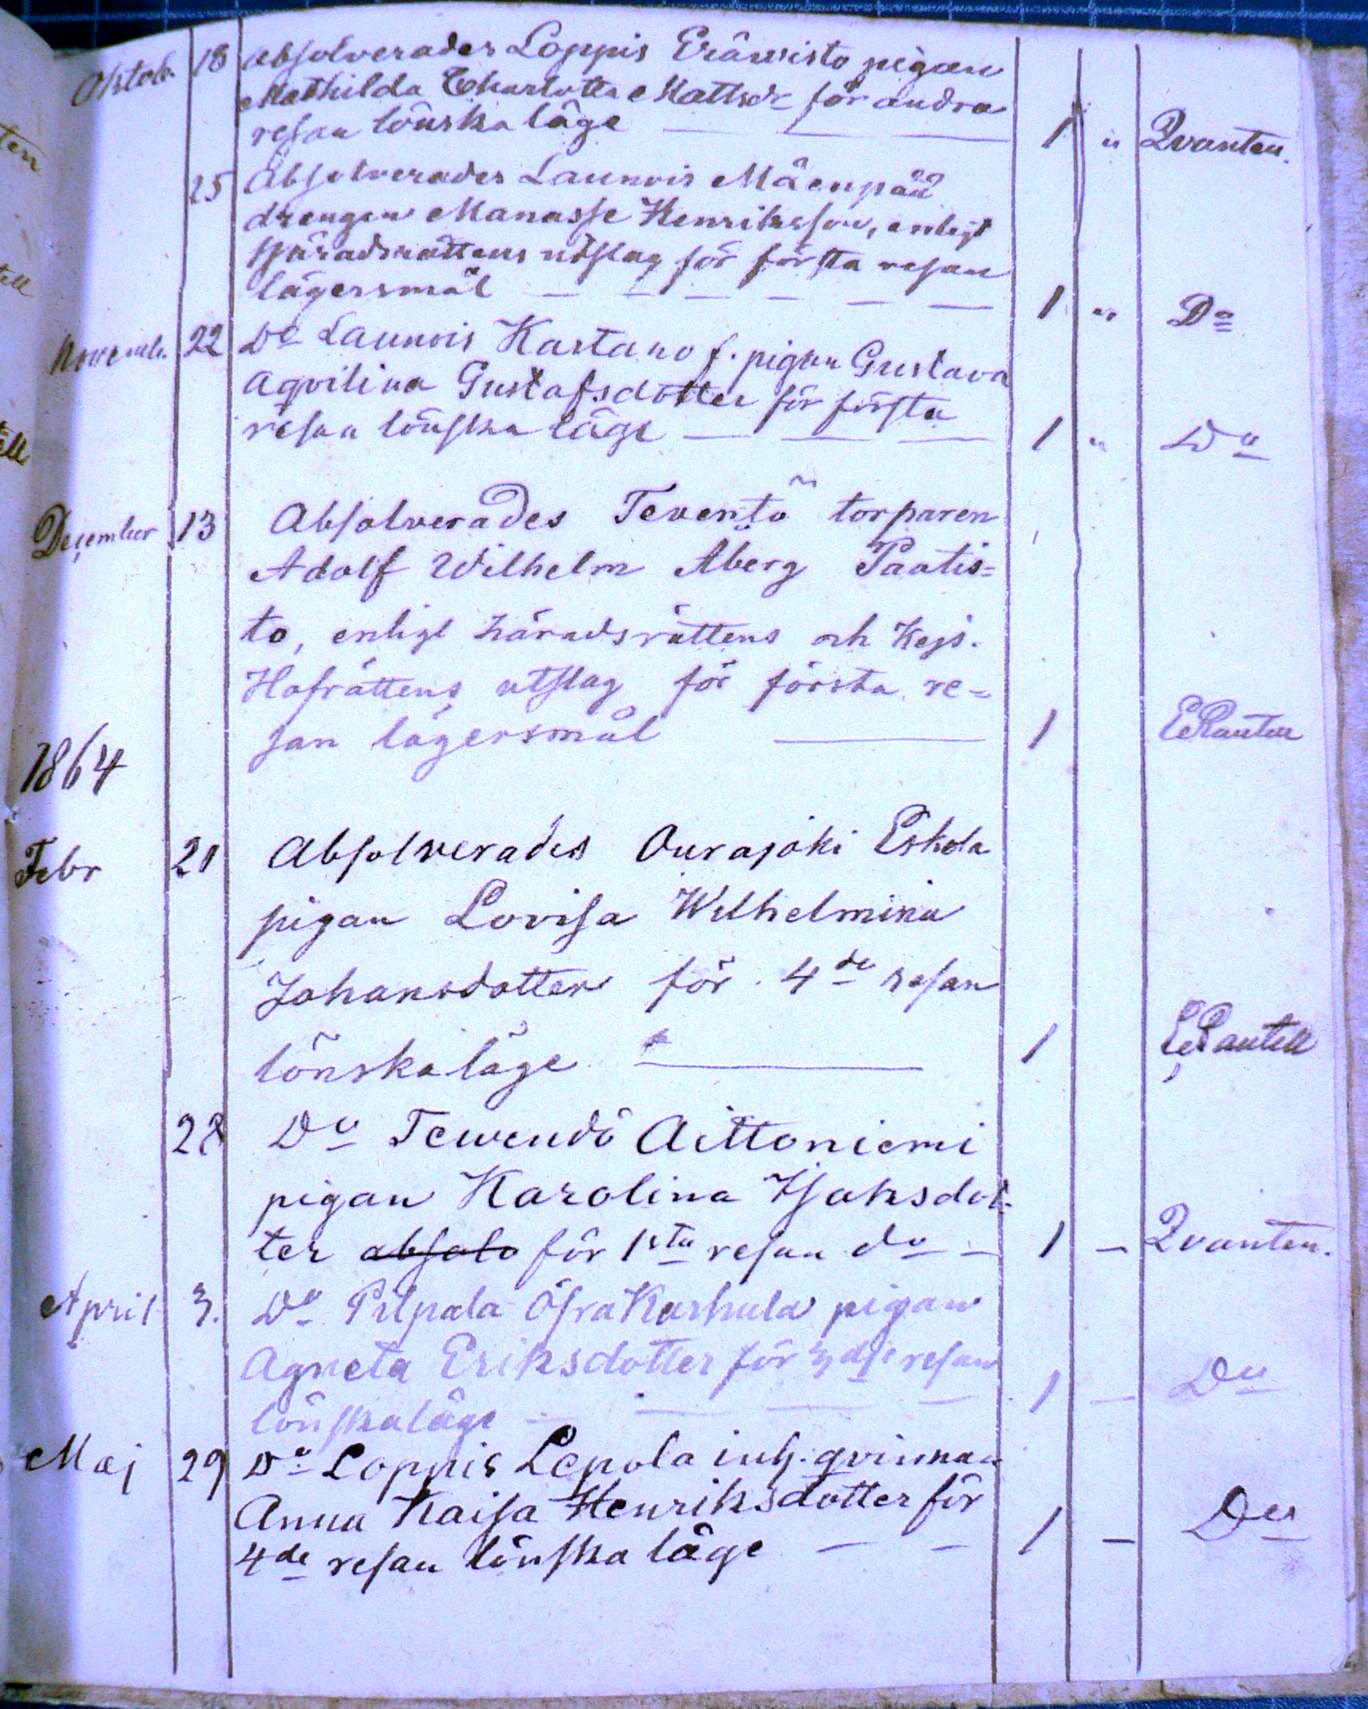 Oktob. 18 absolverades Loppis Eräwisto pigan
Mathilda Charlotta Mattsdr för andra
resan lönska läge — — 1 " Qvanten.
25 Absolverades Launois Mäenpää
drengen Manasse Henriksson, enligt
Häradsrättens utslag för första resan
lägersmål — — — — — — 1 " Do
Novemb. 22 Do Launois Kartano f. pigan Gustava
Aqvilina Gustafsdotter för första
resan lönska läge — — — 1 " Do
December 13 Absolverades Teventö torparen
Adolf Wilhelm Åberg Paatis=
to, enligt häradsrättens och Kejs.
Hofrättens utslag för första re-
san lägersmål — 1
1864
Febr 21 Absolverades Ourajoki Eskola
pigan Lovisa Wilhelmina
Johansdotter för 4de resan
lönskaläge — 1
28 Do Tewendö Aittoniemi
pigan Karolina Isaksdot-
ter absolv för 1sta resan do — 1 — Qvanten.
April 3. Do Pilpala Öfra Karhula pigan
Agneta Eriksdotter för 3dje resan
lönskaläge — — — — 1 — Do
Maj 29 Do Loppis Lepola inh. qvinnan
Anna Kaisa Henriksdotter för
4de resan lönska läge — — 1 — Do